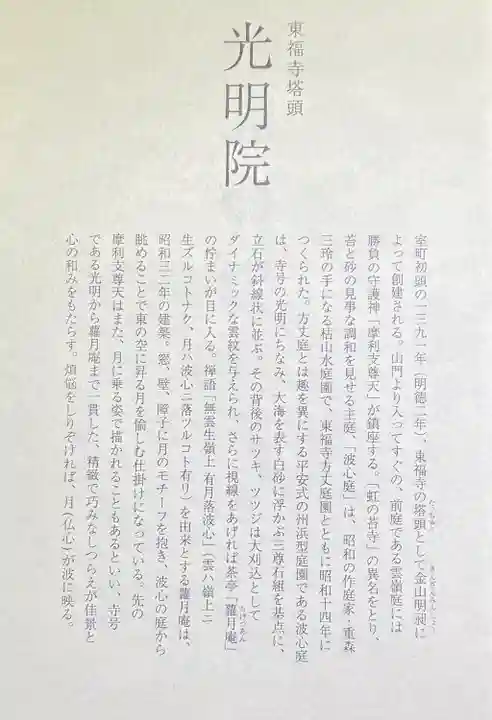 東福寺塔頭
光明院
室町初頭の一三九一年（明徳二年）、東福寺の塔頭として金山明昶に
よって創建される。山門より入ってすぐの、前庭である雲嶺庭には
勝負の守護神「摩利支尊天」が鎮座する。「虹の苔寺」の異名をとり、
苔と砂の見事な調和を見せる主庭、「波心庭」は、昭和の作庭家・重森
三玲の手になる枯山水庭園で、東福寺方丈庭園とともに昭和十四年に
つくられた。方丈庭とは趣を異にする平安式の州浜型庭園である波心庭
は、寺号の光明にちなみ、大海を表す白砂に浮かぶ三尊石組を基点に、
立石が斜線状に並ぶ。その背後のサツキ、ツツジは大刈込として
ダイナミックな雲紋を与えられ、さらに視線をあげれば茶亭「蘿月庵」
の佇まいが目に入る。禅語「無雲生嶺上 有月落波心」（雲ハ嶺上ニ
生ズルコトナク、月ハ波心ニ落ツルコト有リ）を由来とする蘿月庵は、
昭和三二年の建築。窓、壁、障子に月のモチーフを抱き、波心の庭から
眺めることで東の空に昇る月を愉しむ仕掛けになっている。先の
摩利支尊天はまた、月に乗る姿で描かれることもあるといい、寺号
である光明から蘿月庵まで一貫した、精緻で巧みなしつらえが佳景と
心の和みをもたらす。煩悩をしりぞければ、月（仏心）が波に映る。